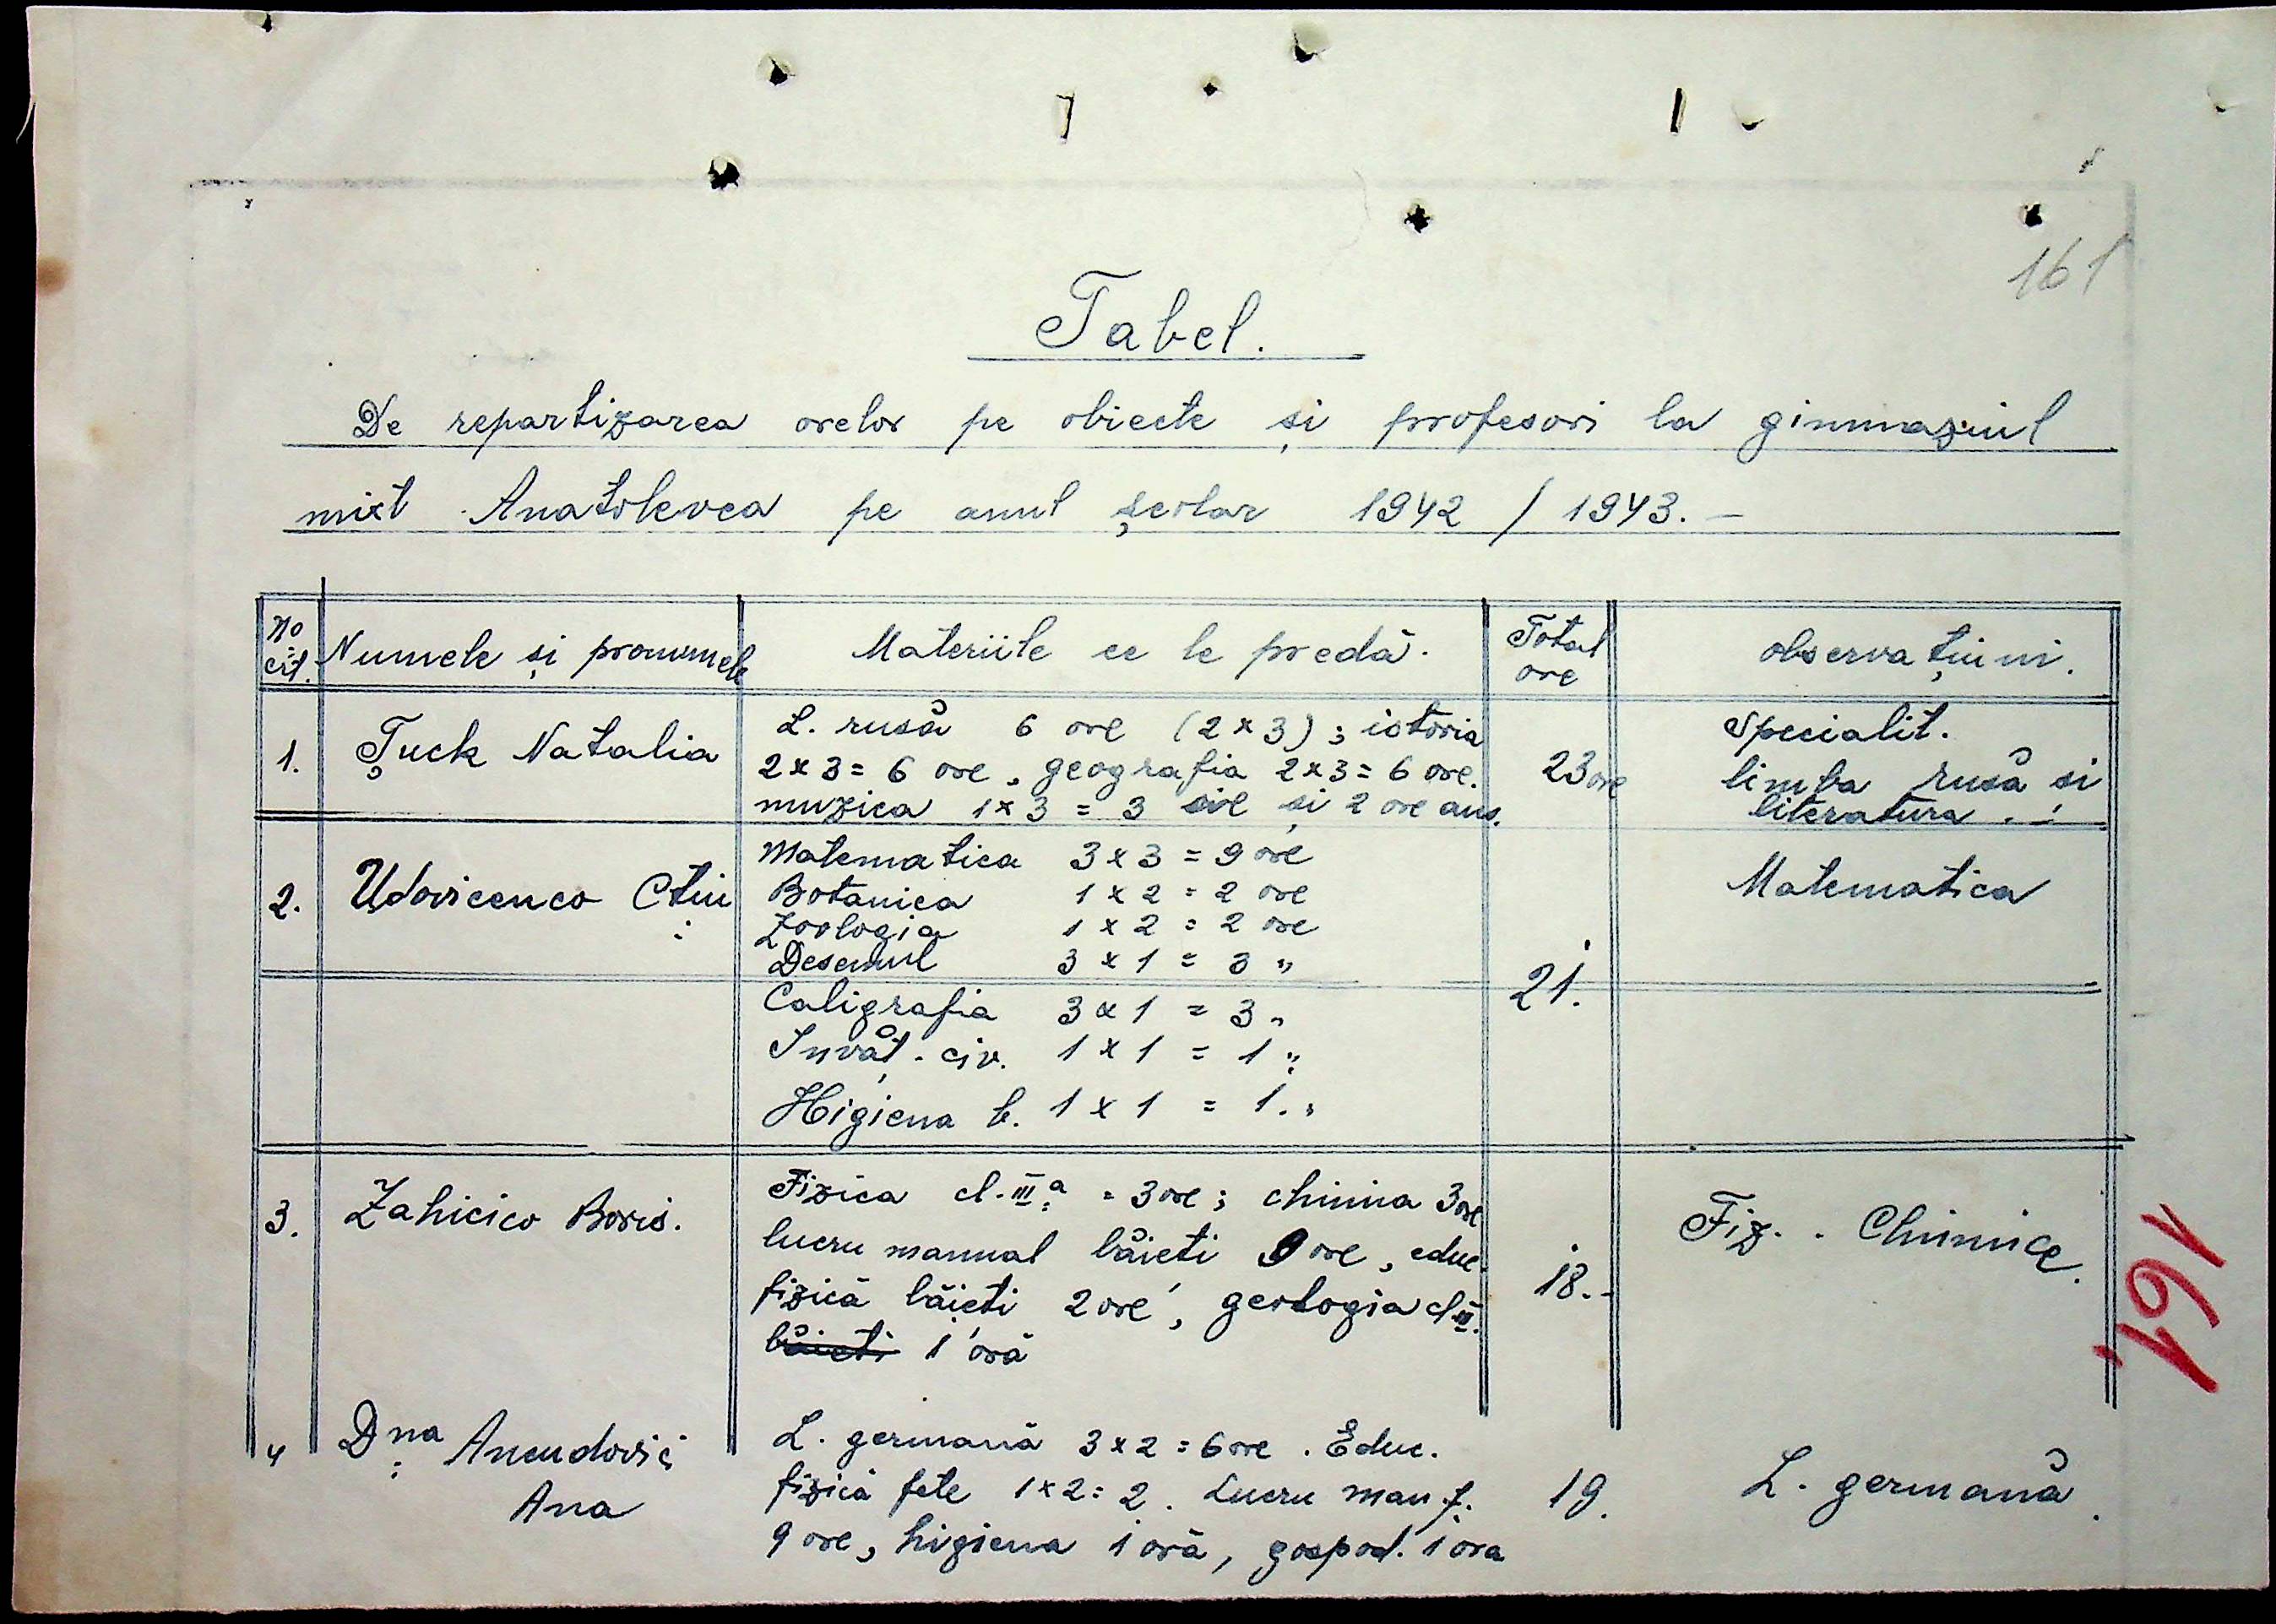 161
Tabel.
De repartizarea orelor pe obiecte și profesori la gimnaziul
mixt Anatolevca pe anul școlar 1942 / 1943. –
No crt. Numele și pronumele Materiile ce le predă. Total ore observațiuni.
1. Țuck Natalia 23 ore
L. rusă 6 ore (2 x 3); istoria
2 x 3 = 6 ore, geografia 2 x 3 = 6 ore.
muzica 1 x 3 = 3 ore și 2 ore ans.
Specialit.
limba rusă si
literatura . –
2. Udovicenco Ctin 21. Matematica
Matematica 3 x 3 = 9 ore
Botanica 1 x 2 = 2 ore
Zoologia 1 x 2 = 2 ore
Desemnul 3 x 1 = 3 "
Caligrafia 3 x 1 = 3 "
Invăț. civ. 1 x 1 = 1 "
Higiena b. 1 x 1 = 1. "
3. Zahicico Boris. 18. - Fiz. . Chimice.
Fizica cl. III a = 3 ore; chimia 3 ore
lucru manual băieti 9 ore, educ.
fizică băieti 2 ore, geologia cl. III.
băieti 1 oră
4 Dna Ana 19. L. germană.
L. germană 3 x 2 = 6 ore. Educ.
fizică fete 1 x 2 = 2. Lucru man. f.
9 ore, higiena 1 oră, gospod. 1 ora
161